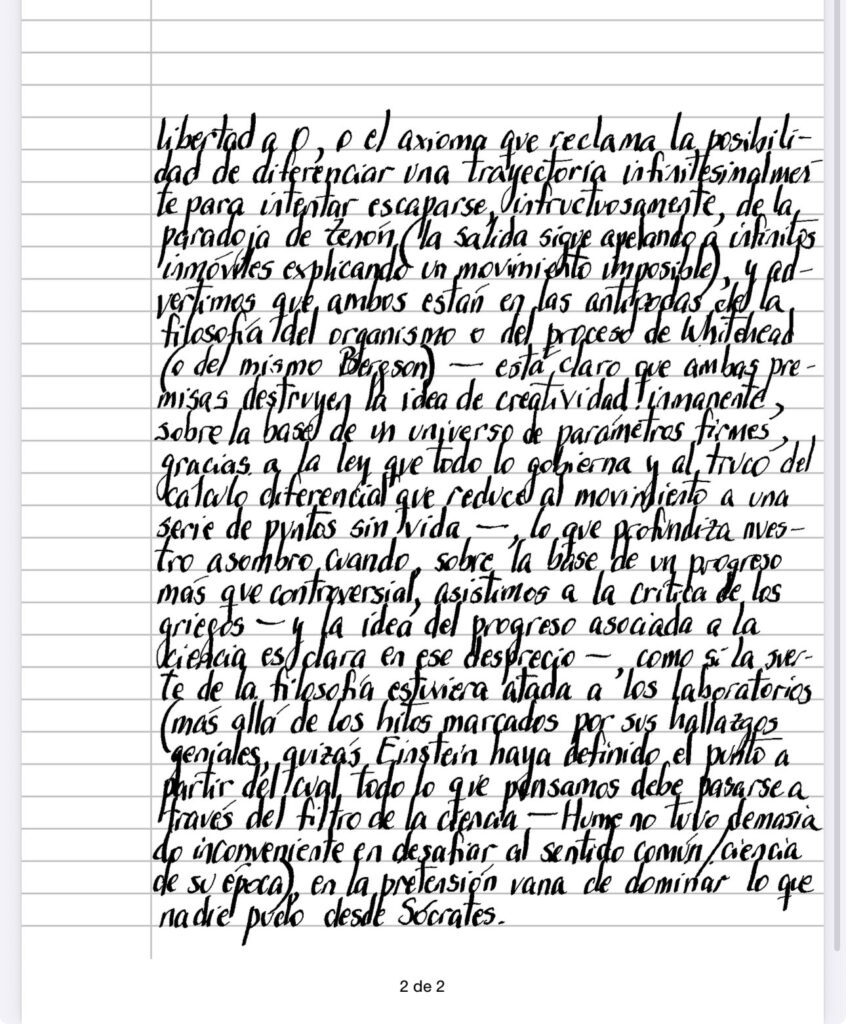 libertad a 0, o el axioma que reclama la posibili-
dad de diferenciar una trayectoria infinitesimalmen
te para intentar escaparse, infructuosamente, de la
paradoja de Zenón (la salida sigue apelando a infinitos
inmóviles explicando un movimiento imposible), y ad-
vertimos que ambos están en las antípodas de la
filosofía del organismo o del proceso de Whitehead
(o del mismo Bergson) — está claro que ambas pre-
misas destruyen la idea de creatividad inmanente,
sobre la base de un universo de parámetros firmes,
gracias a la ley que todo lo gobierna y al truco del
cálculo diferencial que reduce al movimiento a una
serie de puntos sin vida —, lo que profundiza nues-
tro asombro cuando, sobre la base de un progreso
más que controversial, asistimos a la crítica de los
griegos — y la idea del progreso asociada a la
ciencia es clara en ese desprecio —, como si la suer-
te de la filosofía estuviera atada a los laboratorios
(más allá de los hitos marcados por sus hallazgos
geniales, quizás Einstein haya definido el punto a
partir del cual todo lo que pensamos debe pasarse a
través del filtro de la ciencia — Hume no tuvo demasia
do inconveniente en desafiar al sentido común/ciencia
de su época), en la pretensión vana de dominar lo que
nadie pudo desde Sócrates.
2 de 2